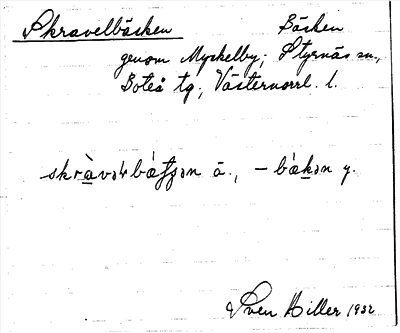 Skravelbäcken Bäcken
genom Myckelby, Styrnäs sn.,
Boteå tg., Västernorrl. l.
skràvəɫbǽʃʃən ä., – bǽkən y.
Sven Hiller 1932